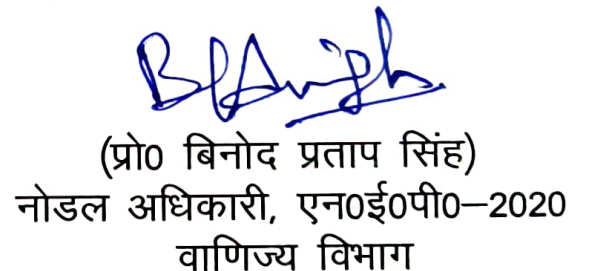 BPSingh.
(प्रो0 बिनोद प्रताप सिंह)
नोडल अधिकारी, एन0ई0पी0–2020
वाणिज्य विभाग